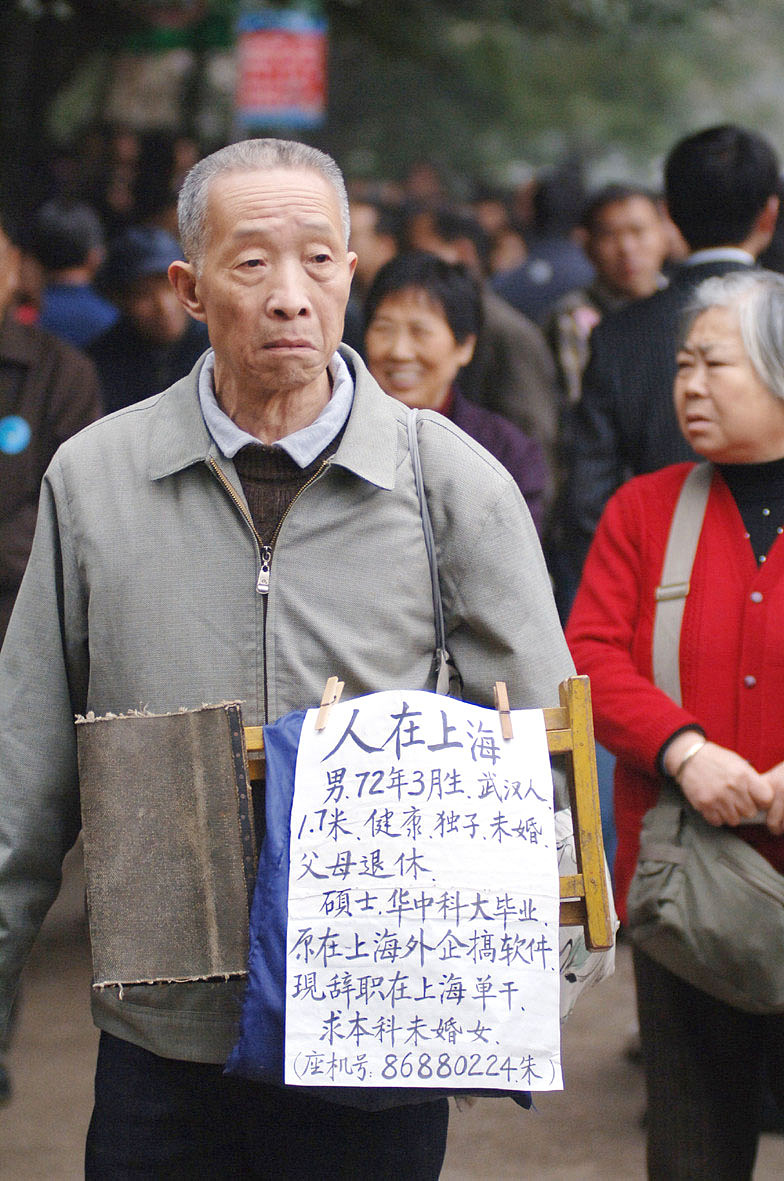 人在上海
男.72年3月生.武汉人.
1.7米.健康.独子.未婚.
父母退休.
碩士.华中科大毕业.
原在上海外企搞软件.
現辞职在上海单干.
求本科未婚女.
(座机号:86880224.朱)